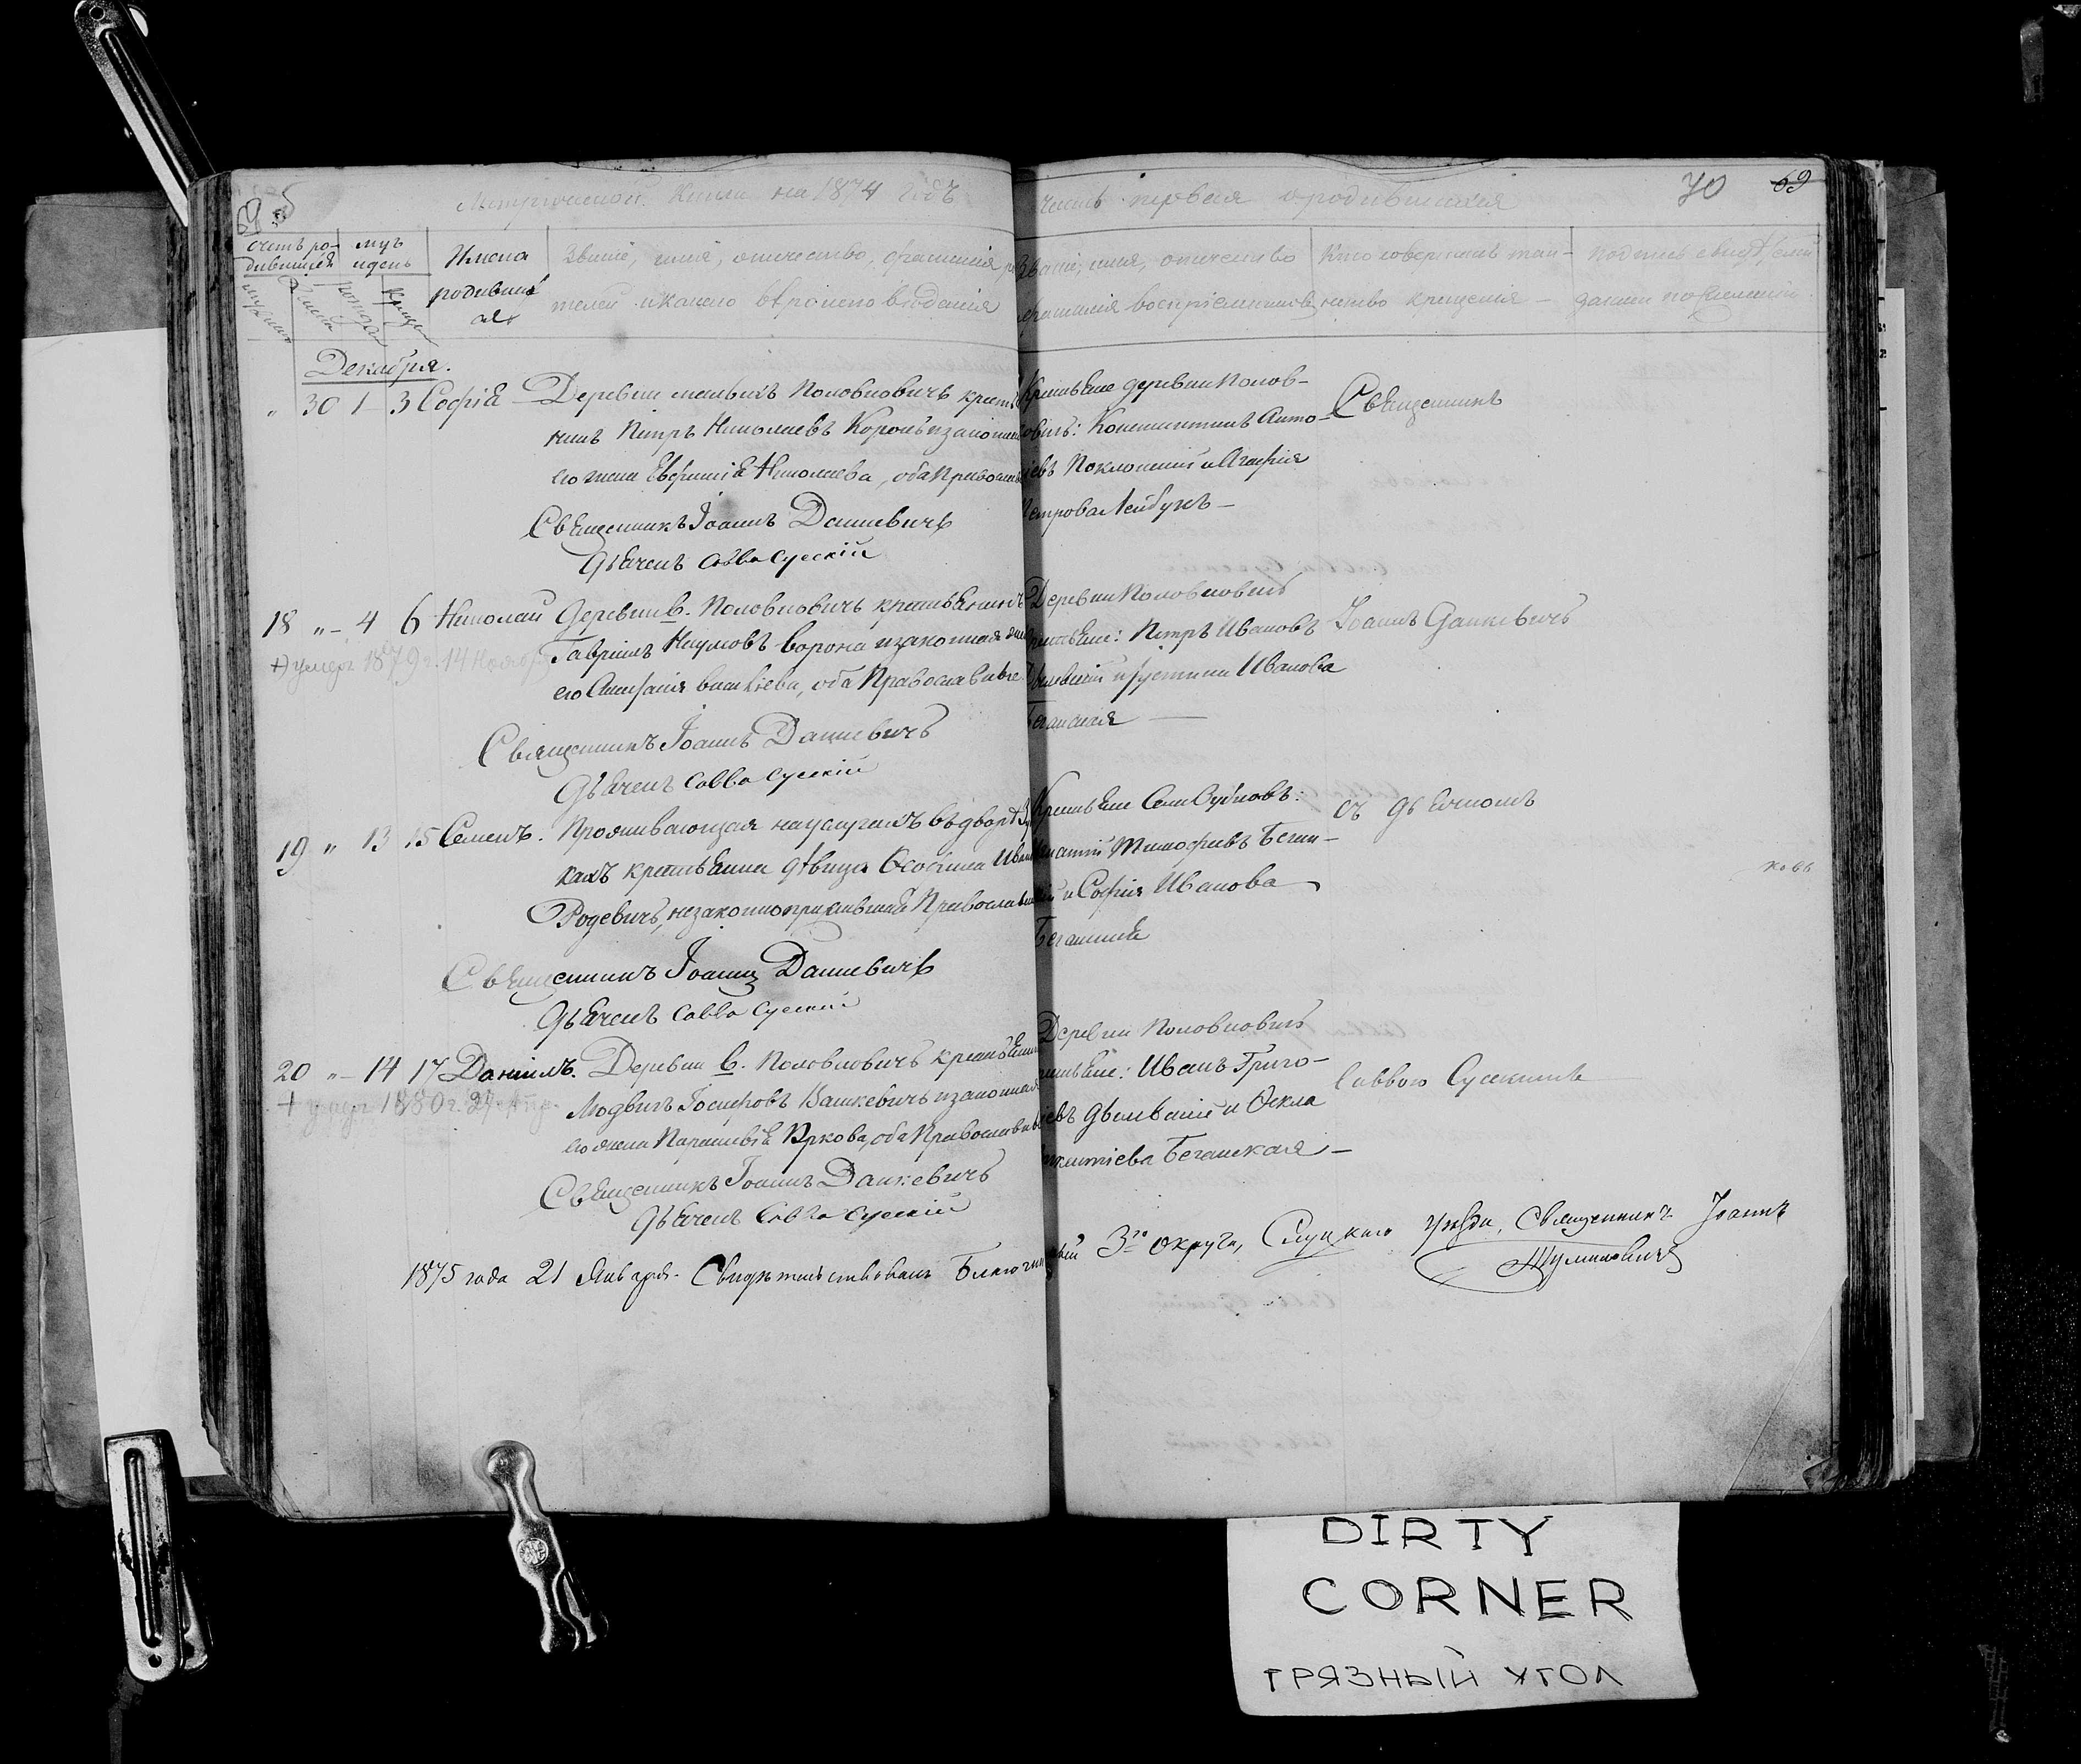 69 об
Метрической Книги на 1874 годъ часть первая о родившихся
70 69
Счетъ ро-
дившихся
муж
женска
мцъ
и день
рожден
крещен
Имена
родивших
ся
Званіе, имя, отечество, фамилія ро
телей и какого вѣроисповѣданія
Званіе, имя, отечество
фамилія воспріемников
Кто совершалъ таи-
нство крещенія —
подпись свидѣтелей
записи по желанію
Декабря.
„ 30 1 3 Софія
Деревни малыхъ Половковичъ крестья
нинъ Петръ Николаевъ Король и законная
его жена Евфимія Николаева, оба Православн
Священникъ Іоаннъ Данкевичъ
Дьячекъ Савва Сулскій
Крестьяне деревни Полов-
ковичъ: Константинъ Анто-
ніевъ Поклонскій и Агафія
Петрова Лейбукъ —
Священникъ
18 „ 4 6 Николай
+) умеръ 1879 г. 14 Ноября
Деревни В. Половковичъ крестьянинъ
Гавріилъ Наумовъ Ворона и законная жена
его Анастасія Васильева, оба Православные
Священникъ Іоаннъ Данкевичъ
Дьячекъ Савва Сулскій
Деревни Половковичъ
крестьяне: Петръ Ивановъ
Іустина Иванова
Беганская —
Іоаннъ Данкевичъ
19 „ 13 15 Семенъ.
Проживающая на услугахъ въ двор
кахъ крестьянка дѣвица Ѳеофила Иван
Родевичъ, незаконноприжившая Православн
Священникъ Іоаннъ Данкевичъ
Дьячекъ Савва Сулскій
Крестьяне Села
Тимофѣевъ Беган-
скій и Софія Иванова
Беганская
съ дьячкомъ
ковъ
20 „ 14 17 Даніилъ.
+ умеръ 1880 г. 27 Апр.
Деревни В. Половковичъ крестьянинъ
Людвигъ Іосифовъ Вашкевичъ и законная
его жена Параскевія Яркова, оба Православн
Священникъ Іоаннъ Данкевичъ
Дьячекъ Савва Сулскій
Деревни Половковичъ
крестьяне: Иванъ Григо-
рьевъ и Ѳекла
Викентіева Беганская —
Саввою Сулскимъ
1875 года 21 Января. Свидѣтельствовалъ Благочинный 3го округа, Слуцкаго уѣзда, Священникъ Іоаннъ
DIRTY
CORNER
ГРЯЗНЫЙ УГОЛ